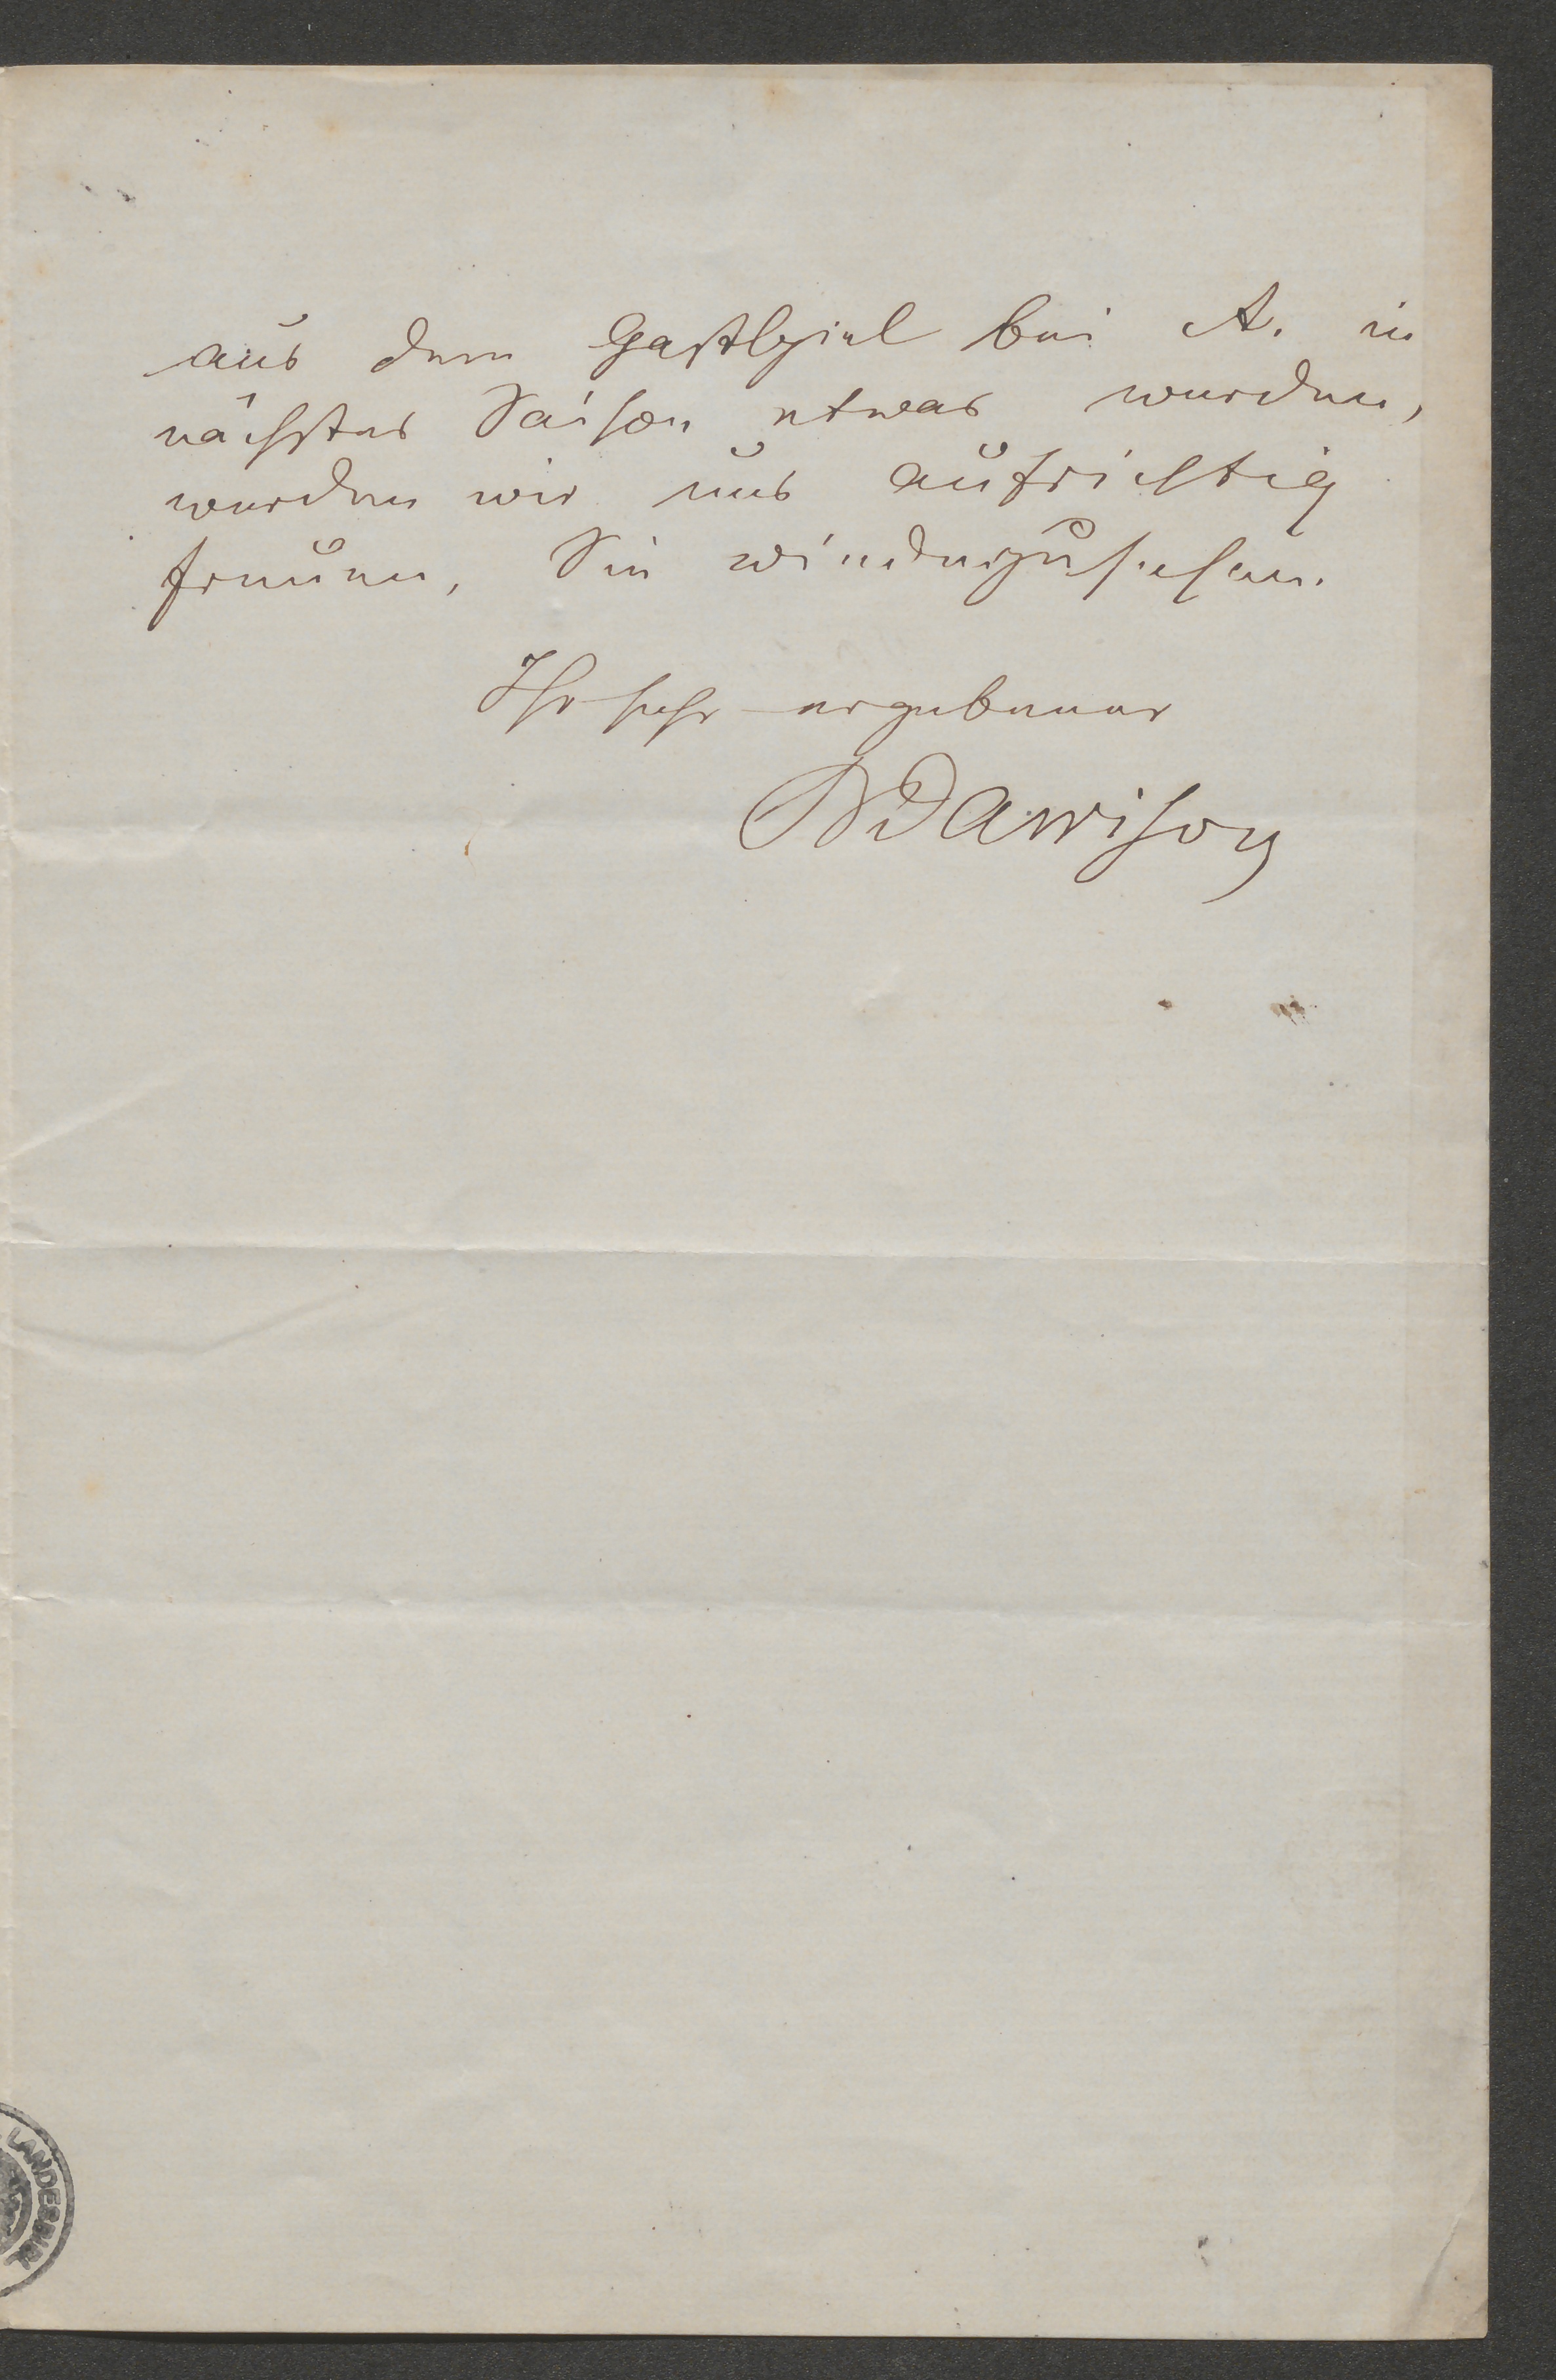 aus dem Gastspiel bei A. in
nächster Saison etwas werden,
werden wir uns aufrichtig
freuen, Sie wiederzusehen.
Ihr sehr ergebener
BDawison
LANDESBIBL